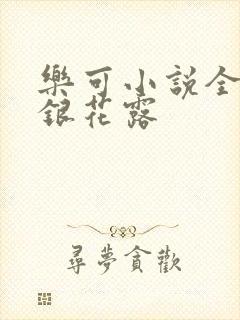 樂可小説全
銀花露
尋夢貪歡